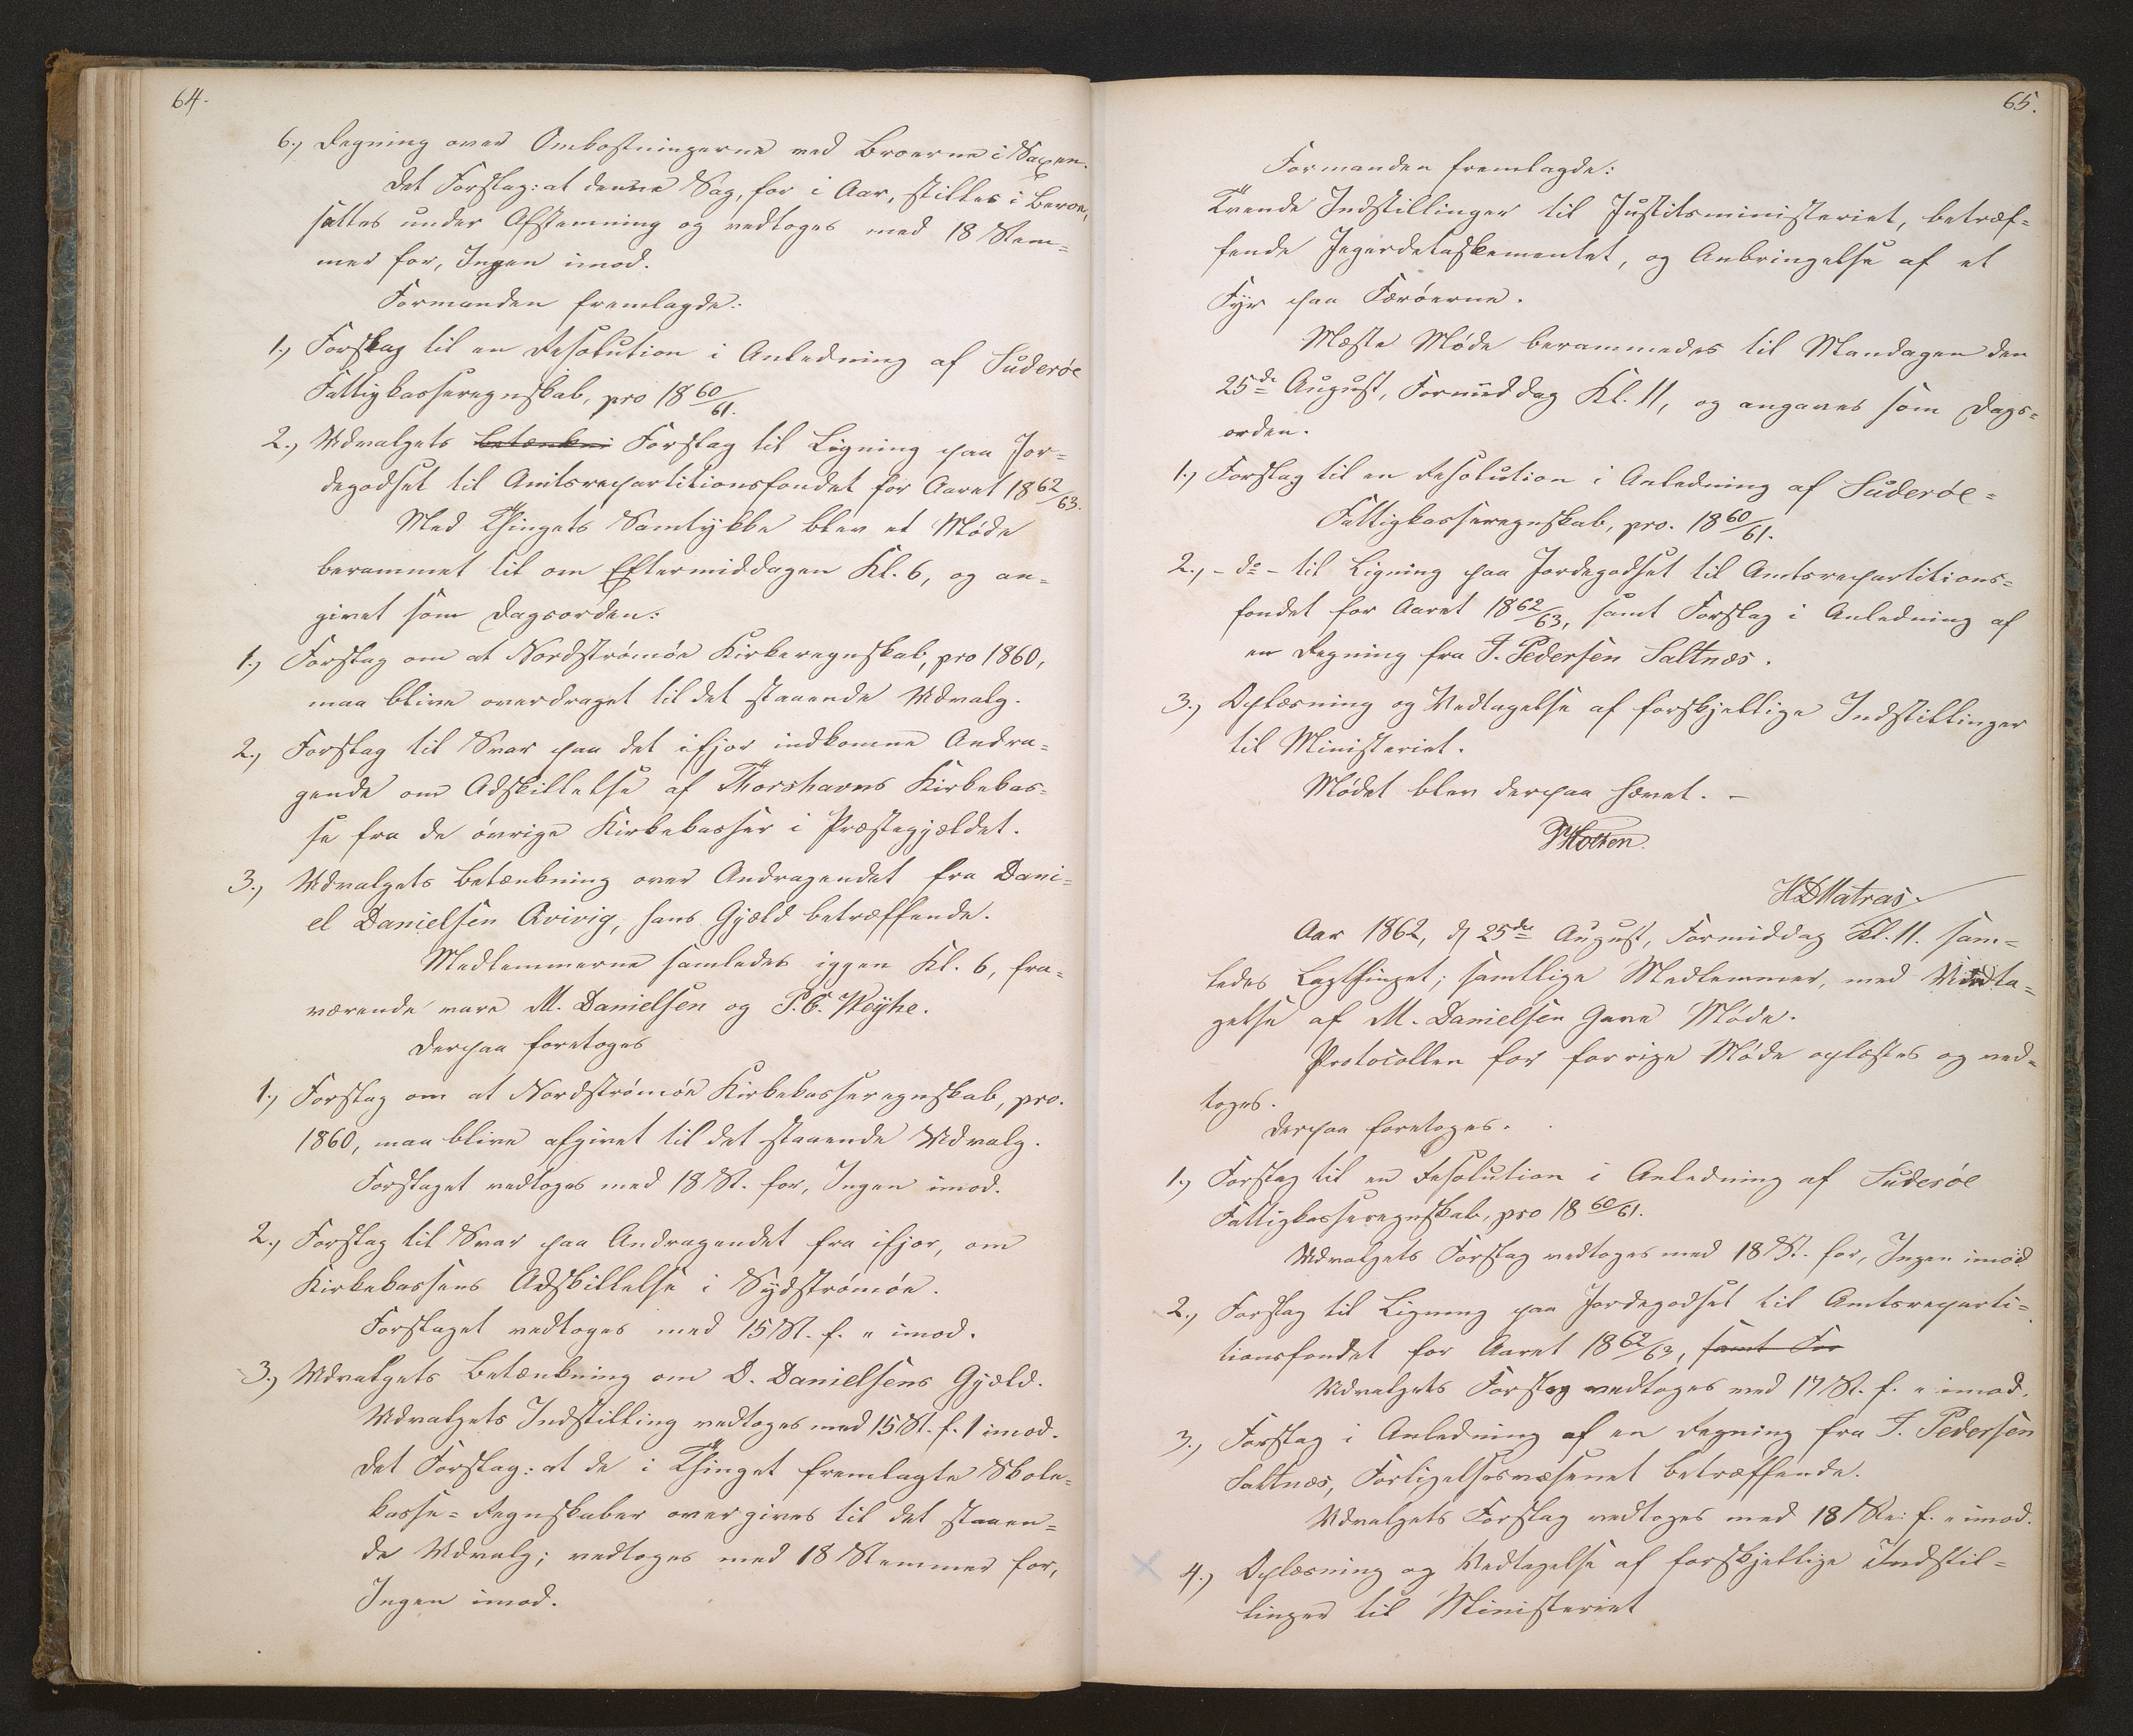 64.
6., Regning over Omkostningerne ved Broerne i Saxen.
Det Forslag: at denne Sag, for i Aar, stilles i Beroe,
sattes under Afstemning og vedtoges med 18 Stem=
mer for, Ingen imod.
Formanden fremlagde:
1., Forslag til en Resolution i Anledning af Suderöe
Fattigkasseregnskab, pro 18 60/61.
2., Udvalgets betænkni Forslag til Ligning paa Jor=
degodset til Amtsrepartitionsfondet for Aaret 18 62/63.
Med Thingets Samtykke blev et Møde
berammet til om Eftermiddagen Kl. 6, og an=
givet som Dagsorden:
1., Forslag om at Nordströmöe Kirkeregnskab, pro 1860,
maa blive overdraget til det staaende Udvalg.
2., Forslag til Svar paa det ifjor indkomne Andra=
gende om Adskillelse af Thorshavns Kirkekas=
se fra de øvrige Kirkekasser i Præstegjældet.
3., Udvalgets Betænkning over Andragendet fra Dani=
el Danielsen Qvivig, hans Gjæld betræffende.
Medlemmerne samledes iggen Kl. 6, fra=
værende vare M. Danielsen og P. C. Weyhe.
Derpaa foretoges
1., Forslag om at Nordströmöe Kirkekasseregnskab, pro.
1860, maa blive afgivet til det staaende Udvalg.
Forslaget vedtoges med 18 St. for, Ingen imod.
2., Forslag til Svar paa Andragendet fra ifjor, om
Kirkekassens Adskillelse i Sydströmöe.
Forslaget vedtoges med 15 St. f. " imod.
3., Udvalgets Betænkning om D. Danielsens Gjæld.
Udvalgets Indstilling vedtoges med 15 St. f. 1 imod.
Det Forslag: at de i Thinget fremlagte Skole=
kasse=Regnskaber overgives til det staaen=
de Udvalg; vedtoges med 18 Stemmer for,
Ingen imod.
65.
Formanden fremlagde:
Tvende Indstillinger til Justitsministeriet, betræf=
fende Jegerdetaskementet, og Anbringelse af et
Fyr paa Færöerne.
Næste Møde berammedes til Mandagen den
25de August, Formiddag Kl. 11, og angaves som Dags=
orden.
1., Forslag til en Resolution i Anledning af Suderöe=
Fattigkasseregnskab, pro. 18 60/61.
2., - do - til Ligning paa Jordegodset til Amtsrepartitions=
fondet for Aaret 18 62/63, samt Forslag i Anledning af
en Regning fra J. Pedersen Saltnæs.
3., Oplæsning og Vedtagelse af forskjellige Indstillinger
til Ministeriet.
Mødet blev derpaa hævet. -
PHolten
HDMatras.
Aar 1862, d 25de August, Formiddag Kl. 11. sam=
ledes Lagthinget; samtlige Medlemmer, med Undta=
gelse af M. Danielsen Gave Møde.
Protocollen for forrige Møde oplæstes og ved=
toges.
Derpaa foretoges.
1., Forslag til en Resolution i Anledning af Suderöe
Fattigkasseregnskab, pro 18 60/61.
Udvalgets Forslag vedtoges med 18 St. for, Ingen imod
2., Forslag til Ligning paa Jordegodset til Amtsreparti=
tionsfondet for Aaret 18 62/63, samt For
Udvalgets Forslag vedtoges med 17 St. f. " imod.
3., Forslag i Anledning af en Regning fra J. Pedersen
Saltnæs, Forligelsesvæsenet betræffende.
Udvalgets Forslag vedtoges med 18 Ste: f. " imod.
4., Oplæsning og Vedtagelse af forskjellige Indstil=
linger til Ministeriet